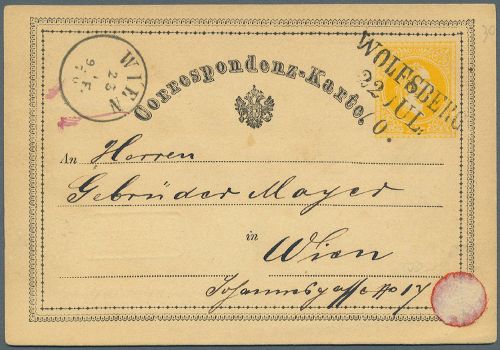 WIEN
23
9.F.
Correspondenz-Karte.
WOLFSBERG
22 JUL.
70.
An Herren
Gebrüder Mayer
in
Wien
Johannesgasse No 17